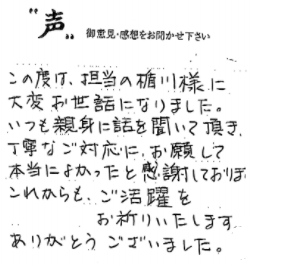 "声" 御意見・感想をお聞かせ下さい
この度は、担当の楯川様に
大変お世話になりました。
いつも親身に話を聞いて頂き、
丁寧なご対応に、お願して
本当によかったと感謝しており
これからも、ご活躍を
お祈りいたします
ありがとうございました。